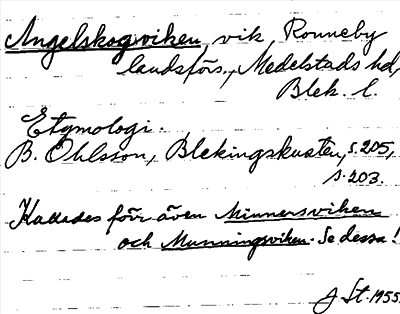 Angelskogviken, vik, Ronneby
landsförs., Medelstads hd,
Blek. l.
Etymologi.
B. Ohlsson, Blekingskusten, s. 205,
s. 203.
Kallades förr även Minnersviken
och Munningsviken. Se dessa!
J St. 1955.